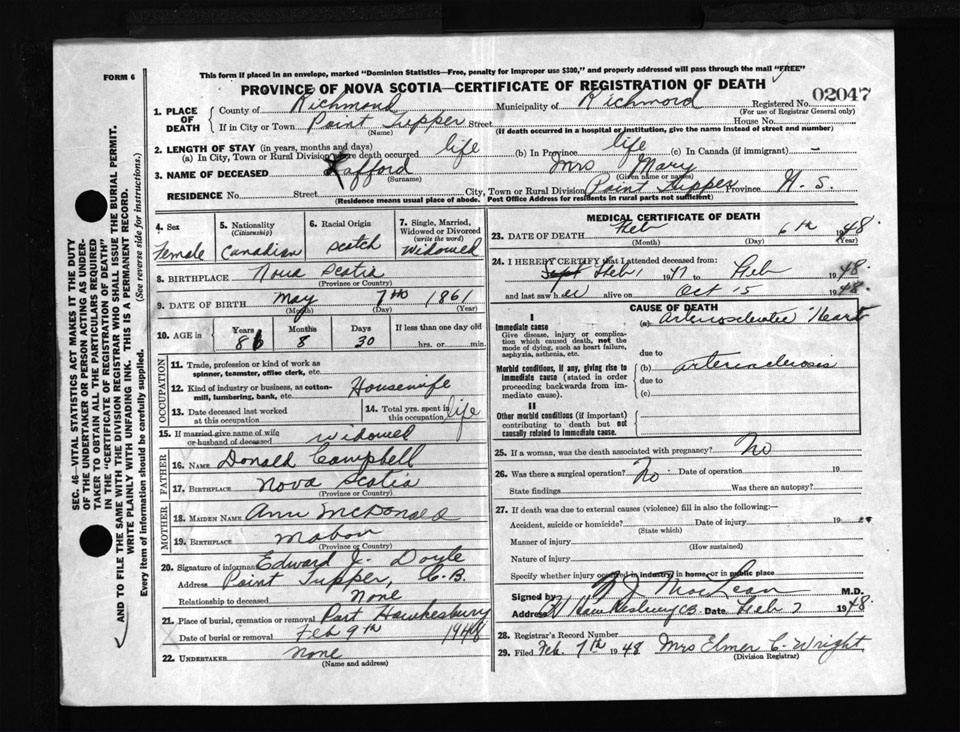 FORM 6
This form if placed in an envelope, marked "Dominion Statistics—Free, penalty for improper use $300," and properly addressed will pass through the mail "FREE"
PROVINCE OF NOVA SCOTIA—CERTIFICATE OF REGISTRATION OF DEATH
02047
1. PLACE OF DEATH
County of Richmond Municipality of Richmond Registered No.
(For use of Registrar General only)
If in City or Town Point Tupper Street House No.
(Name) (If death occurred in a hospital or institution, give the name instead of street and number)
2. LENGTH OF STAY (in years, months and days)
(a) In City, Town or Rural Division where death occurred life (b) In Province life (c) In Canada (if immigrant) —
3. NAME OF DECEASED Lafford Mrs Mary
(Surname) (Given name or names)
RESIDENCE No. Street City, Town or Rural Division Point Tupper Province N. S.
(Residence means usual place of abode. Post Office Address for residents in rural parts not sufficient)
4. Sex Female
5. Nationality (Citizenship) Canadian
6. Racial Origin Scotch
7. Single, Married, Widowed or Divorced (write the word) Widowed
8. BIRTHPLACE Nova Scotia
(Province or Country)
9. DATE OF BIRTH May 7th 1861
(Month) (Day) (Year)
10. AGE in Years 86 Months 8 Days 30 If less than one day old hrs. or min.
OCCUPATION
11. Trade, profession or kind of work as spinner, teamster, office clerk, etc.
12. Kind of industry or business, as cotton-mill, lumbering, bank, etc. Housewife
13. Date deceased last worked at this occupation
14. Total yrs. spent in this occupation life
15. If married give name of wife or husband of deceased widowed
FATHER
16. NAME Donald Campbell
17. BIRTHPLACE Nova Scotia
(Province or Country)
MOTHER
18. MAIDEN NAME Ann McDonald
19. BIRTHPLACE Mabou
(Province or Country)
20. Signature of informant Edward J. Doyle
Address Point Tupper, C.B.
Relationship to deceased None
21. Place of burial, cremation or removal Port Hawkesbury
Date of burial or removal Feb 9th 1948
22. UNDERTAKER none
(Name and address)
MEDICAL CERTIFICATE OF DEATH
23. DATE OF DEATH Feb 6th 1948
(Month) (Day) (Year)
24. I HEREBY CERTIFY that I attended deceased from:
Sept Feb 1 1947 to Feb 1948
and last saw h er alive on Oct 15 1948.
CAUSE OF DEATH
I
Immediate cause
Give disease, injury or complication which caused death, not the mode of dying, such as heart failure, asphyxia, asthenia, etc.
(a) Arteriosclerotic Heart
due to
Morbid conditions, if any, giving rise to immediate cause (stated in order proceeding backwards from immediate cause)
(b) arteriosclerosis
due to
(c)
II
Other morbid conditions (if important) contributing to death but not causally related to immediate cause.
25. If a woman, was the death associated with pregnancy? No
26. Was there a surgical operation? No Date of operation 19
State findings Was there an autopsy?
27. If death was due to external causes (violence) fill in also the following:—
Accident, suicide or homicide? Date of injury 19
(State which)
Manner of injury
(How sustained)
Nature of injury
Specify whether injury occurred in industry, in home, or in public place
Signed by MacLean M.D.
Address Pt Hawkesbury CB. Date Feb 7 1948.
28. Registrar's Record Number
29. Filed Feb. 7th 1948 Mrs Elmer C. Wright
(Division Registrar)
SEC. 46—VITAL STATISTICS ACT MAKES IT THE DUTY
OF THE UNDERTAKER OR PERSON ACTING AS UNDER-
TAKER TO OBTAIN ALL THE PARTICULARS REQUIRED
IN THE "CERTIFICATE OF REGISTRATION OF DEATH"
AND TO FILE THE SAME WITH THE DIVISION REGISTRAR WHO SHALL ISSUE THE BURIAL PERMIT.
WRITE PLAINLY WITH UNFADING INK. THIS IS A PERMANENT RECORD.
Every item of information should be carefully supplied. (See reverse side for instructions.)